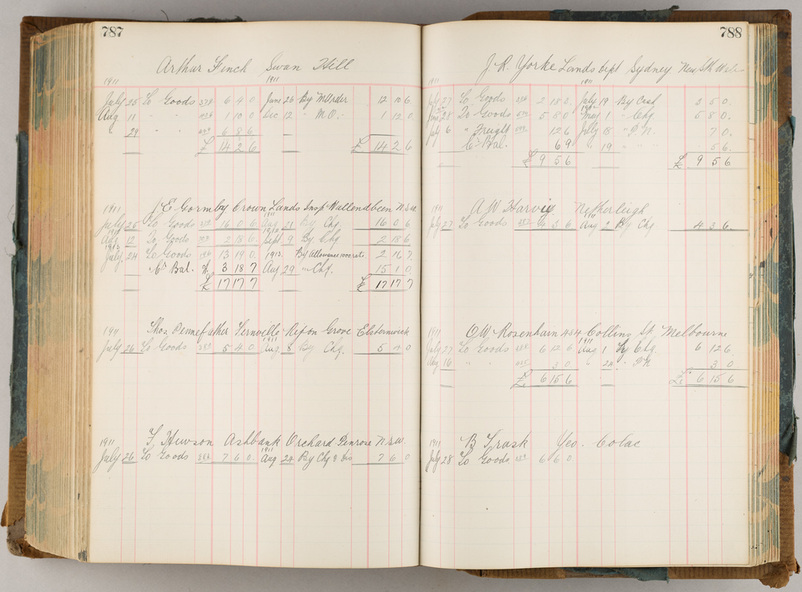 787
Arthur Finch Swan Hill
1911 1911
July 25 To Goods 6 9 0 June 23 By M Order 12 10 6
Aug 11 " " 1 10 0 Dec 12 " M.O. 1 12 0
29 " " 6 8 6
£ 14 2 6 £ 14 2 6
1911 E Gormby Crown Lands Insp Wallendbeen N.S.W.
July 25 To Goods 16 0 6 21 By Chq 16 0 6
Aug 12 To Goods 2 18 6 Sept 9 By Chq 2 18 6
1912
July 24 To Goods 13 19 0 1912 By Allowance 2 16 7
Bal. 3 18 7 Aug 29 " Chq. 15 1 0
£ 17 17 7 £ 17 17 7
1911 Thos Pennefather Fernville Ripon Grove Elsternwick
July 26 To Goods 5 4 0 Aug By Chq. 5 4 0
1911 F. Hewson Ashbank Orchard Penrose N.S.W.
July 26 To Goods 7 6 0 Aug 24 By Chq & Dis 7 6 0
788
J R Yorke Lands Dept Sydney New Sth Wales
1911
July 27 To Goods 2 18 0 July 19 By Cash 2 5 0
28 To Goods 5 8 0 May 1 " Chq 5 8 0
July 6 " Freight 12 6 July 8 " P.N. 7 0
Bal. 6 9 " 19 " 5 6
£ 9 5 6 £ 9 5 6
A W Harvie Netherleigh
July 27 To Goods Aug 2 By Chq
1911 O W Rosenhain 454 Collins St Melbourne
July 27 To Goods 6 12 6 Aug 1 By Chq 6 12 6
Aug 16 " " 3 0 " 22 " P.N 3 0
£ 6 15 6 £ 6 15 6
1911 B Trask Yeo. Colac
July 28 To Goods 6 6 0